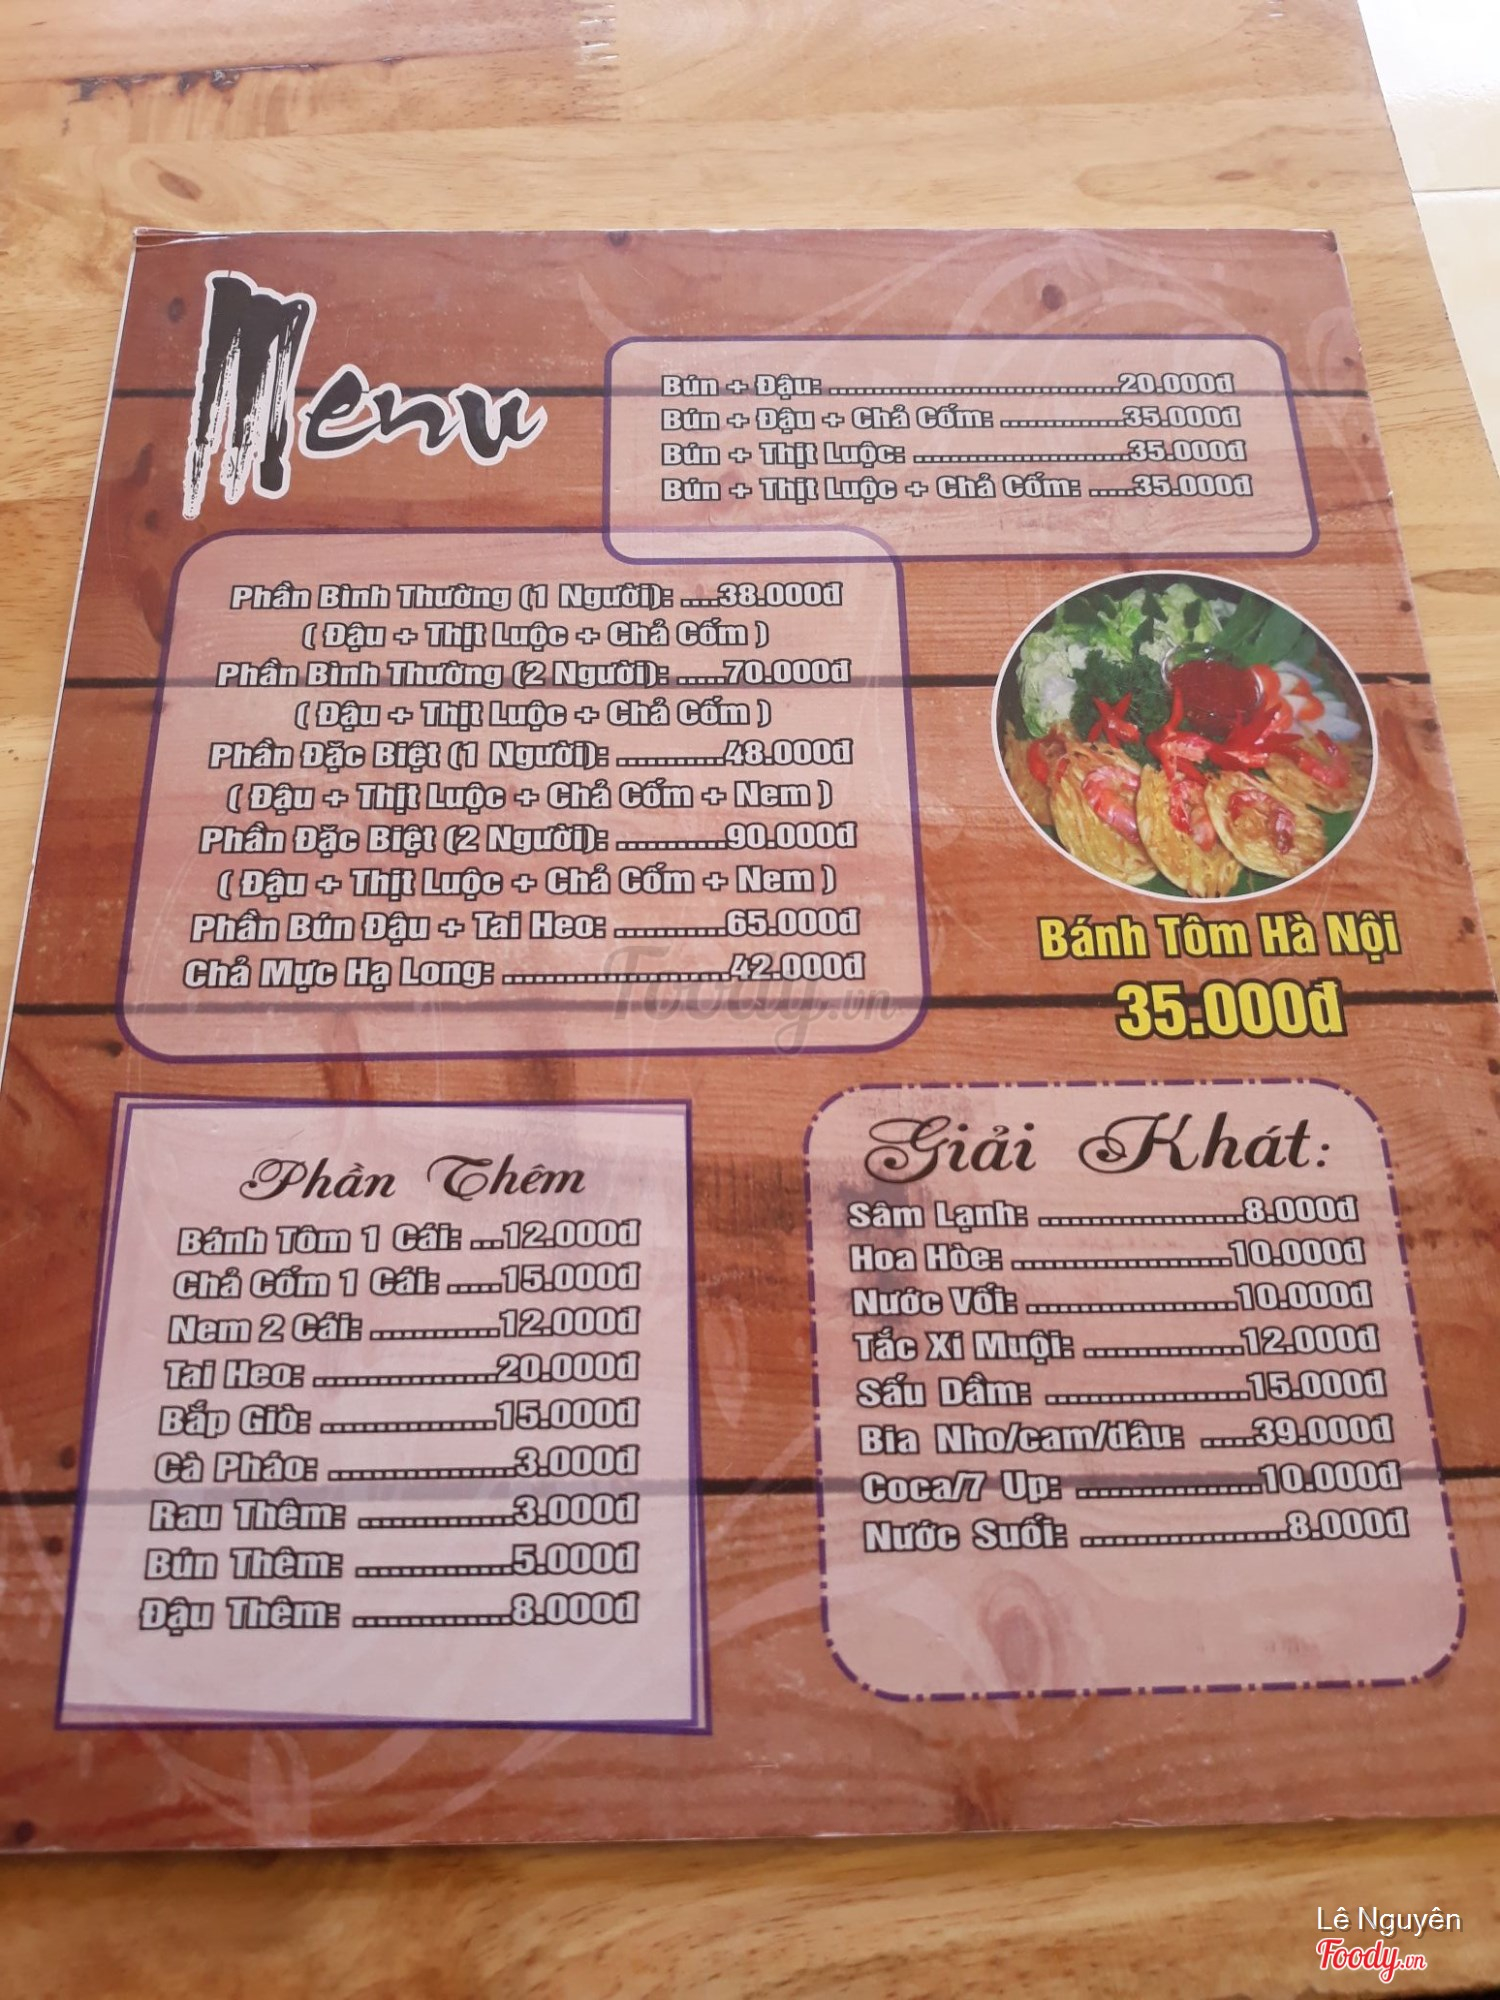 Menu
Bún + Đậu: ..................................20.000đ
Bún + Đậu + Chả Cốm: ..............35.000đ
Bún + Thịt Luộc: .........................35.000đ
Bún + Thịt Luộc + Chả Cốm: .....35.000đ
Phần Bình Thường (1 Người): ....38.000đ
( Đậu + Thịt Luộc + Chả Cốm )
Phần Bình Thường (2 Người): .....70.000đ
( Đậu + Thịt Luộc + Chả Cốm )
Phần Đặc Biệt (1 Người): ...........48.000đ
( Đậu + Thịt Luộc + Chả Cốm + Nem )
Phần Đặc Biệt (2 Người): ...........90.000đ
( Đậu + Thịt Luộc + Chả Cốm + Nem )
Phần Bún Đậu + Tai Heo: ...........65.000đ
Chả Mực Hạ Long: .......................42.000đ
Bánh Tôm Hà Nội
35.000đ
Foody.vn
Phần Thêm
Bánh Tôm 1 Cái: ...12.000đ
Chả Cốm 1 Cái: .....15.000đ
Nem 2 Cái: ............12.000đ
Tai Heo: .................20.000đ
Bắp Giò: ................15.000đ
Cà Pháo: .................3.000đ
Rau Thêm: ..............3.000đ
Bún Thêm: ..............5.000đ
Đậu Thêm: ..............8.000đ
Giải Khát:
Sâm Lạnh: ....................8.000đ
Hoa Hòe: .....................10.000đ
Nước Vối: ....................10.000đ
Tắc Xí Muội: ...............12.000đ
Sấu Dầm: ...................15.000đ
Bia Nho/cam/dâu: .....39.000đ
Coca/7 Up: .................10.000đ
Nước Suối: ...................8.000đ
Lê Nguyên
Foody.vn